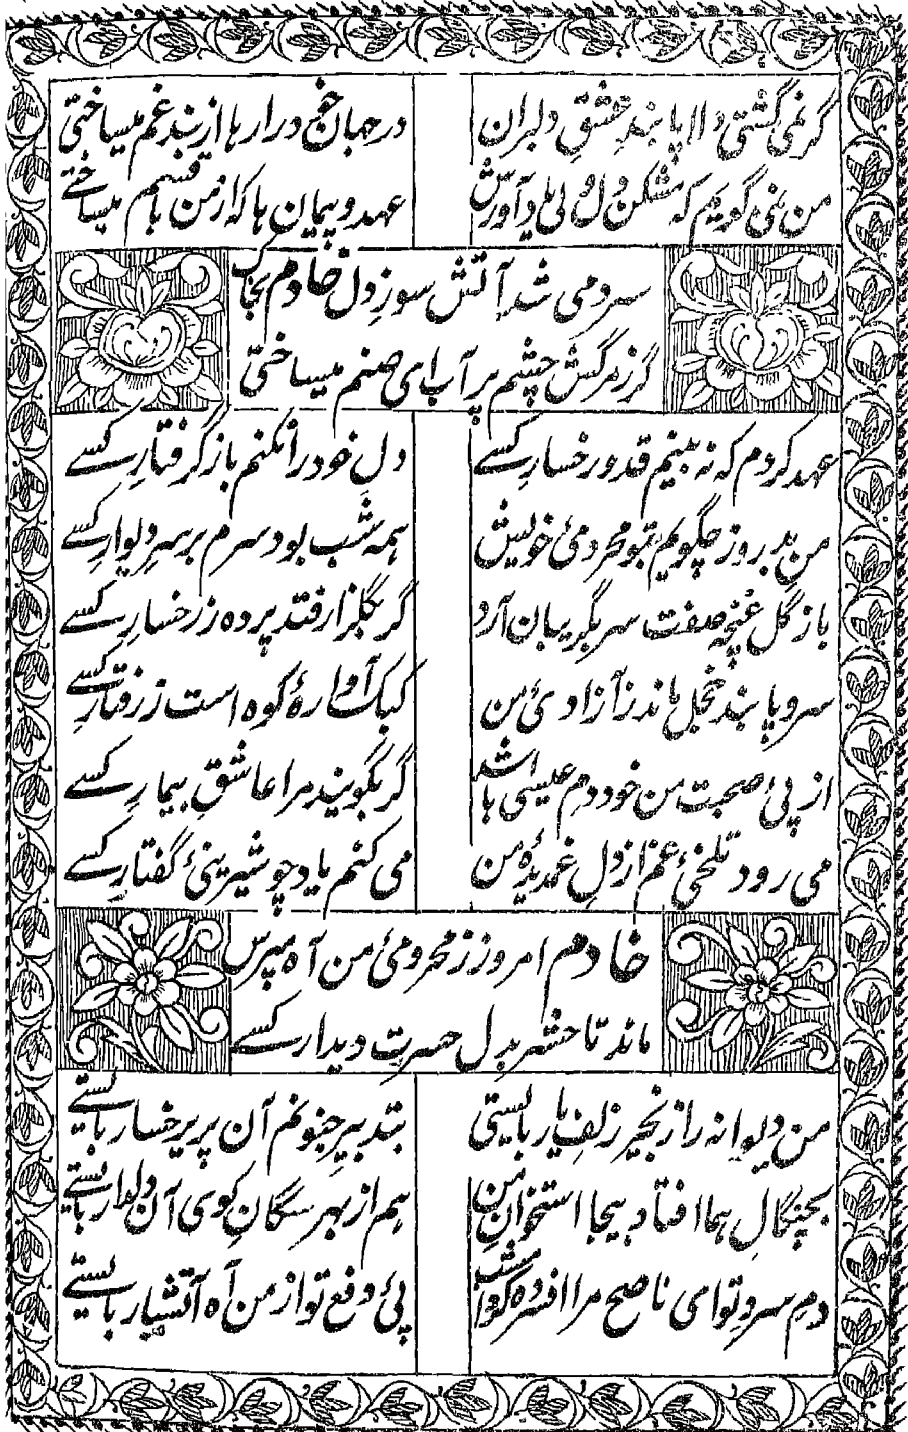 گر نمی گشتی دلا پابندِ عشقِ دلبران
در جهان خجر در ارہا از بند غم میساختی
من نمی گویم کہ مشکن دل ولی یاد آورش
عہد و پیمان ہا کہ از من با قسم میساختے
سرد می شد آتش سوزِ دل خادم بجا
گر ز مرگش چشم پر آب ای صنم میساختی
عہد کردم کہ نہ بینم قد و رخسارِ کسے
دلِ خود را نکنم باز گرفتارِ کسے
من بد روز چگویم بتو محرومئ خویش
ہمہ شب بود سرم بر سرِ دیوارِ کسے
باز گل غنچہ صفت سر بگریبان آرد
گر بگلزار فتد پردہ ز رخسارِ کسے
سرو پابند خجل ماند ز آزادئ من
کبک آوارۂ کوہ است ز رفتارِ کسے
از پئ صحبت من خود دم عیسی باشد
گر بگویند مرا عاشقِ بیمارِ کسے
می رود تلخئ غم از دلِ غمدیدۂ من
می کنم یاد چو شیرینئ گفتارِ کسے
خادم امروز ز محرومئ من آہ مپرس
ماند تا حشر بدل حسرتِ دیدار کسے
من دیوانہ را زنجیر زلفِ یار بایستی
بتدبیرِ جنونم آن پریرخسار بایستے
بچنگالِ ہما افتاد بیجا استخوانِ من
ہم از بہر سگانِ کوی آن دلدار بایستے
دمِ سردِ تو ای ناصح مرا افسردہ کرد امشب
پئ دفع تو از من آہ آتشبار بایستے